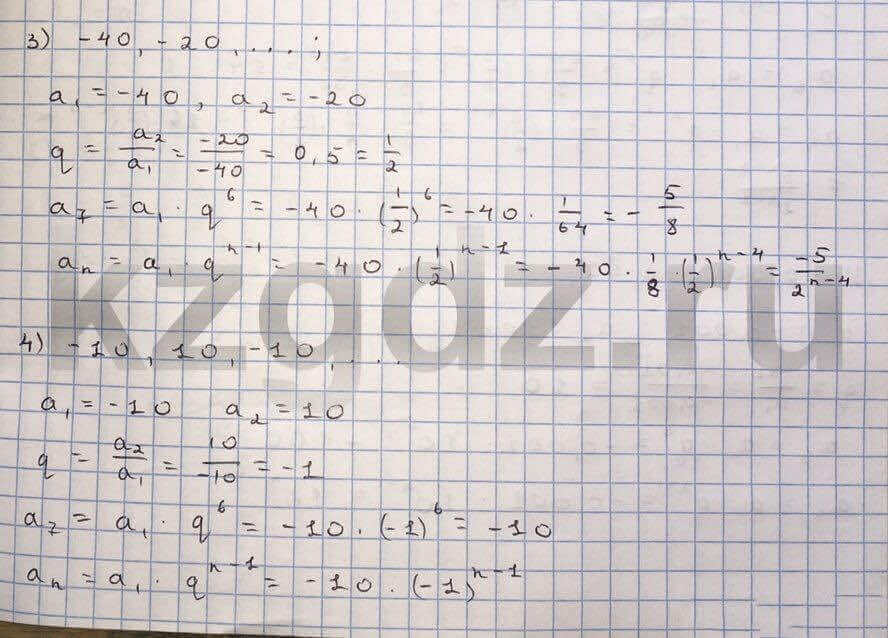 3) -40, -20, ....;
a₁ = -40, a₂ = -20
q = a₂/a₁ = -20/-40 = 0,5 = 1/2
a₇ = a₁ · q⁶ = -40 · (1/2)⁶ = -40 · 1/64 = - 5/8
aₙ = a₁ · qⁿ⁻¹ = -40 · (1/2)ⁿ⁻¹ = -40 · 1/8 · (1/2)ⁿ⁻⁴ = -5/2ⁿ⁻⁴
kzgdz.ru
4) -10, 10, -10, ...
a₁ = -10 a₂ = 10
q = a₂/a₁ = 10/-10 = -1
a₇ = a₁ · q⁶ = -10 · (-1)⁶ = -10
aₙ = a₁ · qⁿ⁻¹ = -10 · (-1)ⁿ⁻¹